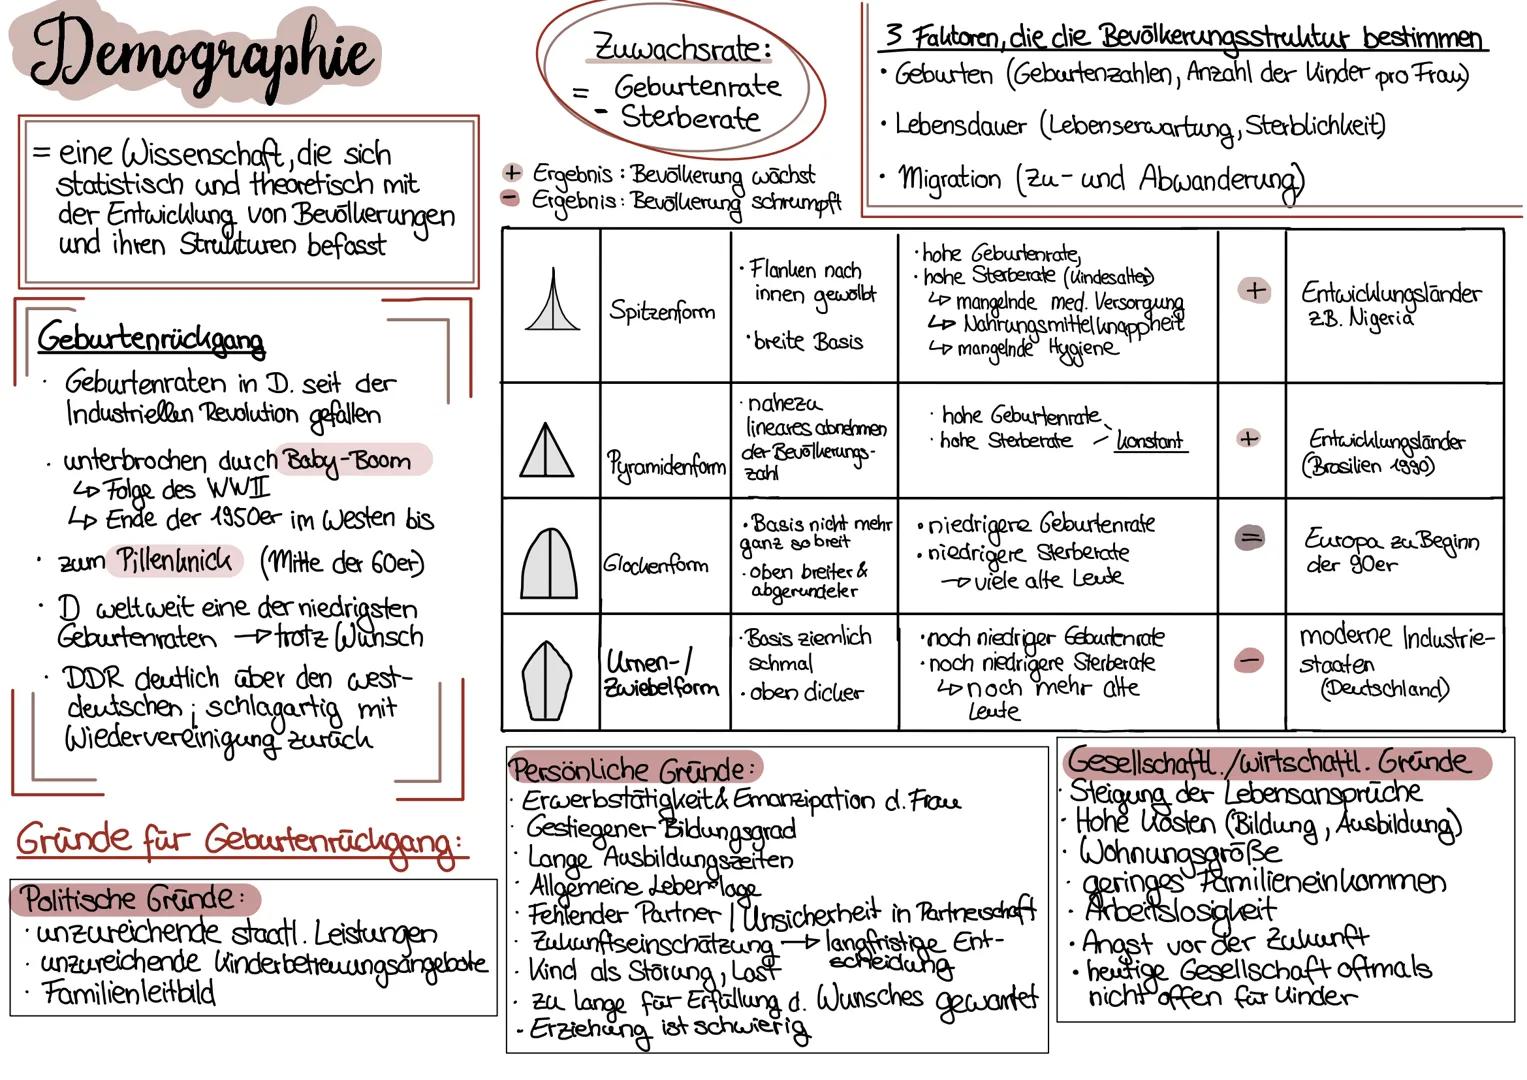 Demographie
= eine Wissenschaft, die sich
statistisch und theoretisch mit
der Entwicklung von Bevölkerungen
und ihren Strukturen befasst
Zuwachsrate:
= Geburtenrate
- Sterberate
+ Ergebnis : Bevölkerung wächst
- Ergebnis : Bevölkerung schrumpft
3 Faktoren, die die Bevölkerungsstruktur bestimmen
· Geburten (Geburtenzahlen, Anzahl der Kinder pro Frau)
· Lebensdauer (Lebenserwartung, Sterblichkeit)
· Migration (zu- und Abwanderung)
Geburtenrückgang
· Geburtenraten in D. seit der
Industriellen Revolution gefallen
· unterbrochen durch Baby-Boom
↳ Folge des WWII
↳ Ende der 1950er im Westen bis
· zum Pillenknick (Mitte der 60er)
· D weltweit eine der niedrigsten
Geburtenraten → trotz Wunsch
· DDR deutlich über den west-
deutschen ; schlagartig mit
Wiedervereinigung zurück
Spitzenform
· Flanken nach
innen gewölbt
· breite Basis
· hohe Geburtenrate,
· hohe Sterberate (Kindesalter)
↳ mangelnde med. Versorgung
↳ Nahrungsmittelknappheit
↳ mangelnde Hygiene
+
Entwicklungsländer
z.B. Nigeria
Pyramidenform
· nahezu
lineares abnehmen
der Bevölkerungs-
zahl
· hohe Geburtenrate
· hohe Sterberate - konstant
+
Entwicklungsländer
(Brasilien 1990)
Glockenform
· Basis nicht mehr
ganz so breit
· oben breiter &
abgerundeter
· niedrigere Geburtenrate
· niedrigere Sterberate
→ viele alte Leute
=
Europa zu Beginn
der 90er
Urnen-/
Zwiebelform
· Basis ziemlich
schmal
· oben dicker
· noch niedriger Geburtenrate
· noch niedrigere Sterberate
↳ noch mehr alte
Leute
-
moderne Industrie-
staaten
(Deutschland)
Gründe für Geburtenrückgang:
Politische Gründe:
· unzureichende staatl. Leistungen
· unzureichende Kinderbetreuungsangebote
· Familienleitbild
Persönliche Gründe:
· Erwerbstätigkeit & Emanzipation d. Frau
· Gestiegener Bildungsgrad
· Lange Ausbildungszeiten
· Allgemeine Lebenslage
· Fehlender Partner / Unsicherheit in Partnerschaft
· Zukunftseinschätzung → langfristige Ent-
scheidung
· Kind als Störung, Last
· zu lange für Erfüllung d. Wunsches gewartet
· Erziehung ist schwierig
Gesellschaftl./wirtschaftl. Gründe
· Steigung der Lebensansprüche
· Hohe Kosten (Bildung, Ausbildung)
· Wohnungsgröße
· geringes Familieneinkommen
· Arbeitslosigkeit
· Angst vor der Zukunft
· heutige Gesellschaft oftmals
nicht offen für Kinder